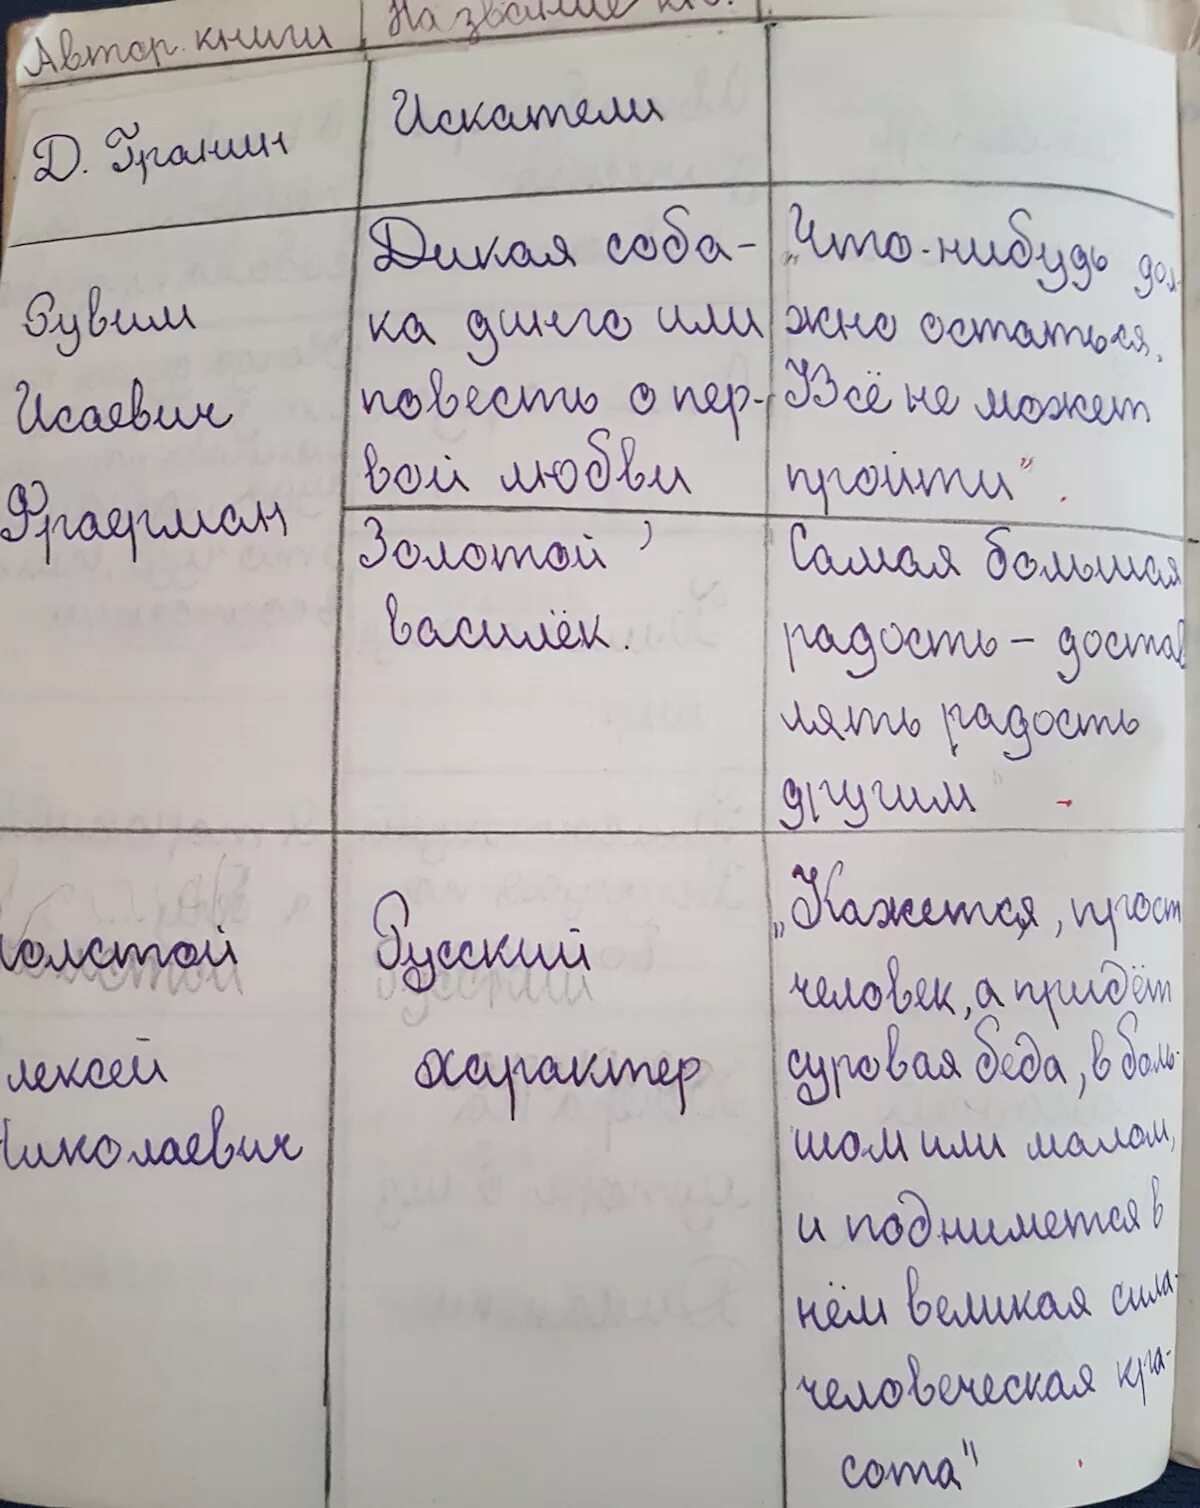 Автор. книги
Название кн.
Д. Гранин
Искатели
Рувим
Исаевич
Фраерман
Дикая соба-
ка динго или
повесть о пер-
вой любви
„Что-нибудь дол-
жно остаться.
Всё не может
пройти".
Золотой
василёк.
Самая большая
радость – достав
лять радость
другим"
олстой
лексей
николаевич
Русский
характер
„Кажется, прост
человек, а придёт
суровая беда, в боль-
шом или малом,
и поднимется в
нём великая сила-
человеческая кра-
сота"